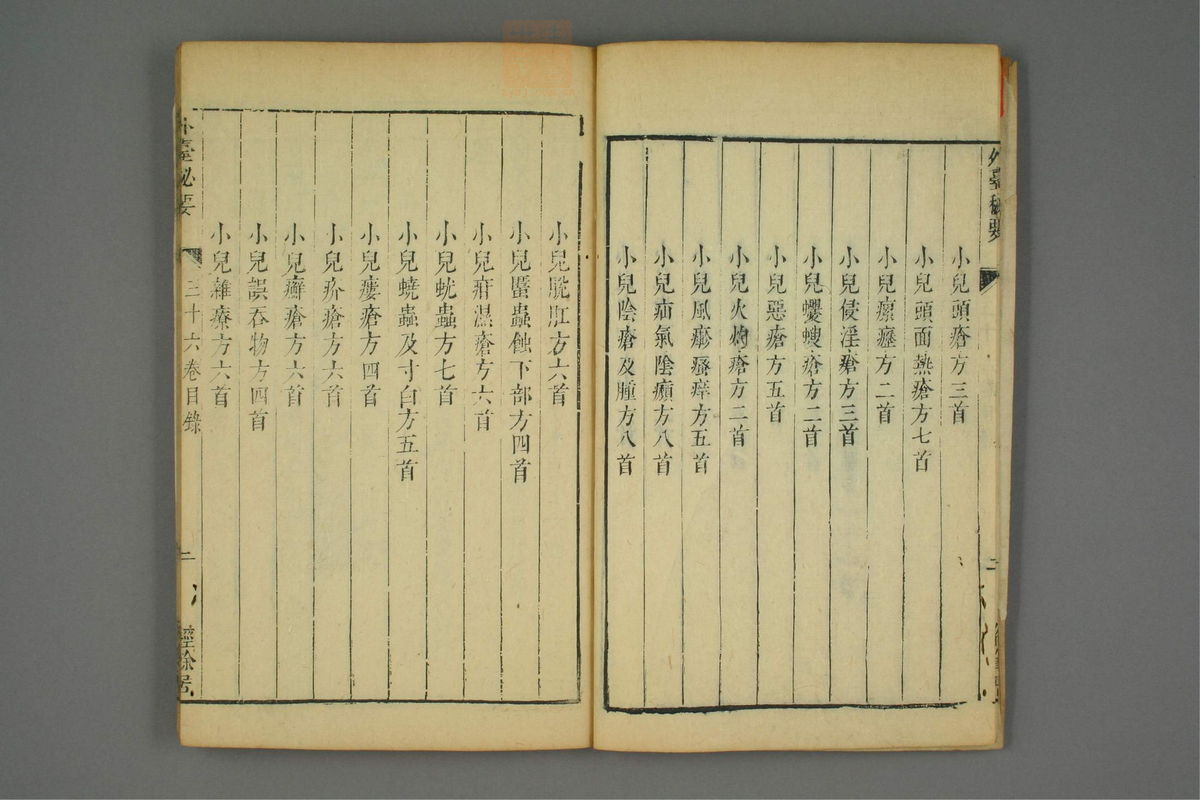 外臺秘要
小兒頭瘡方三首
小兒頭面熱瘡方七首
小兒瘰癧方二首
小兒侵淫瘡方三首
小兒蠼螋瘡方二首
小兒惡瘡方五首
小兒火灼瘡方二首
小兒風𤺋瘾瘁方五首
小兒疝氣陰㿗方八首
小兒陰瘡及腫方八首
二
小兒脫肛方六首
小兒䘌蟲蝕下部方四首
小兒疳濕瘡方六首
小兒蚘蟲方七首
小兒蟯蟲及寸白方五首
小兒瘻瘡方四首
小兒疥瘡方六首
小兒癬瘡方六首
小兒誤吞物方四首
小兒雜療方六首
外臺秘要
三十六卷目錄
二
經餘居